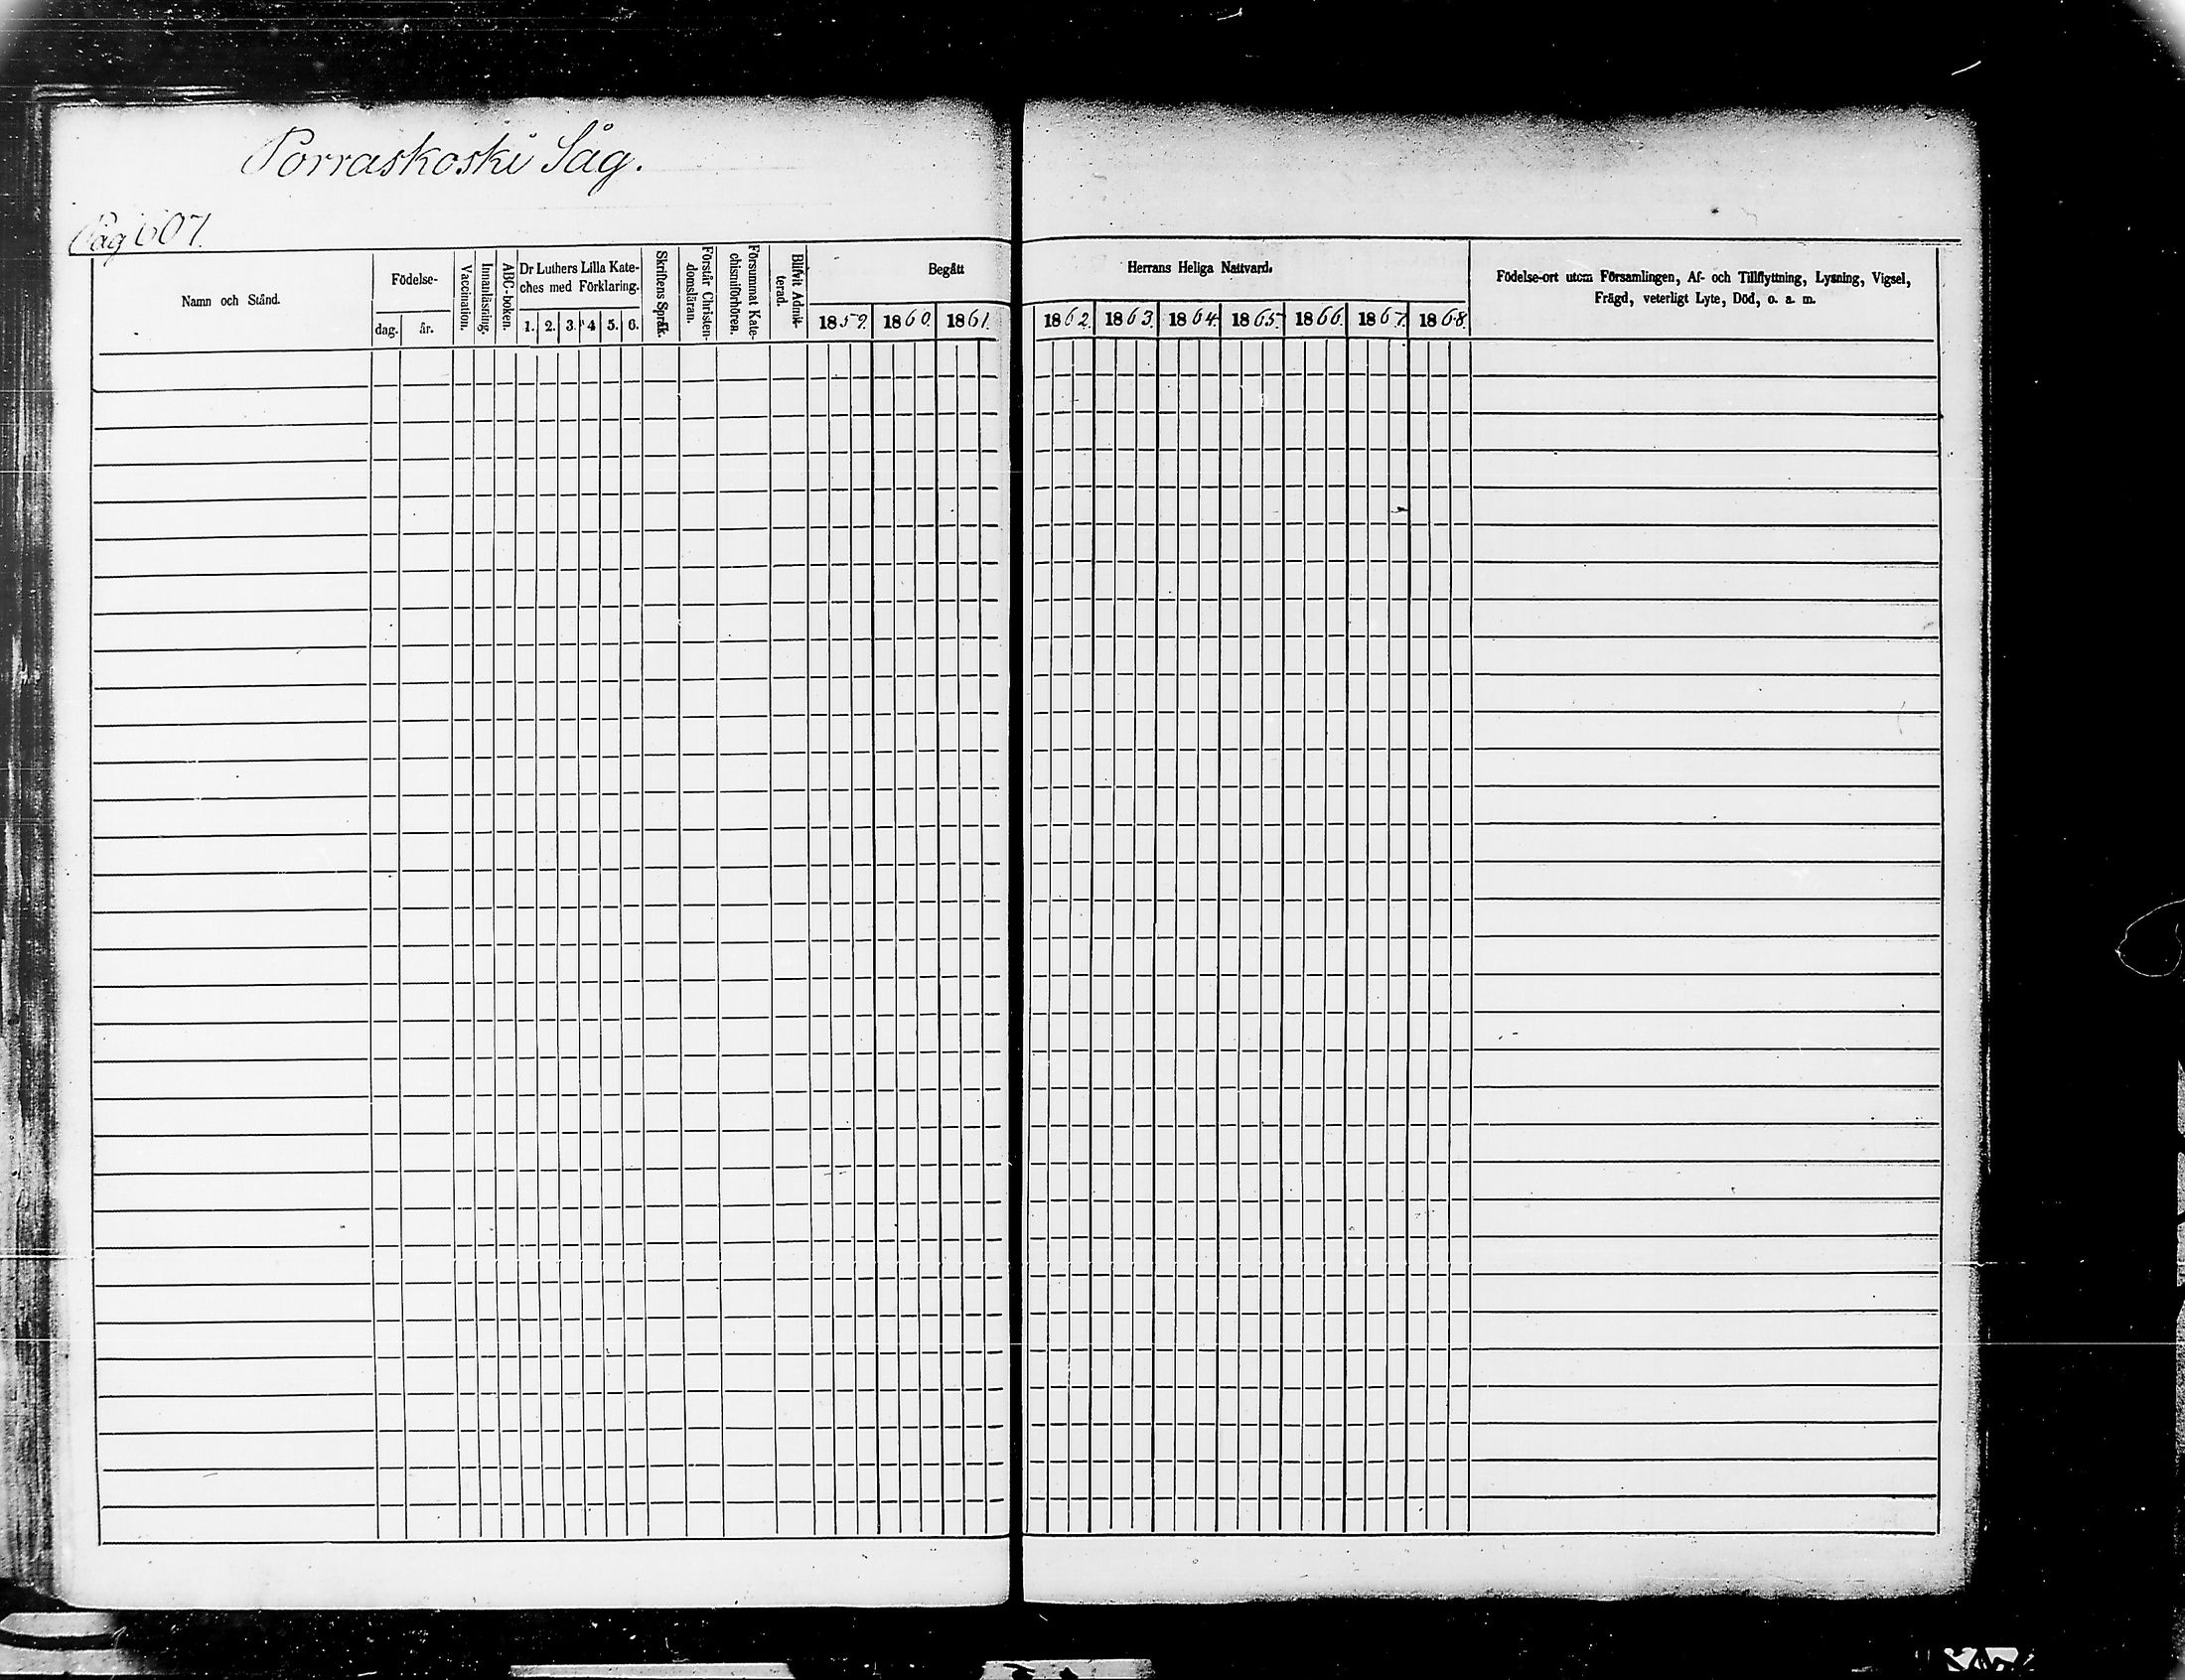 Porraskoski Såg.
Pag 607.
Namn och Stånd.
Födelse-
dag.
år.
Vaccination.
Innanläsning.
ABC-boken.
Dr Luthers Lilla Kate-
ches med Förklaring.
1. 2. 3. 4 5. 6.
Skriftens Språk.
Förstår Christen-
domsläran.
Försummat Kate-
chismiförhören.
Blifvit Admit-
terad.
Begått
1859. 1860. 1861.
Herrans Heliga Nattvard.
1862. 1863. 1864. 1865. 1866. 1867. 1868.
Födelse-ort utom Församlingen, Af- och Tillflyttning, Lysning, Vigsel,
Frägd, veterligt Lyte, Död, o. a. m.